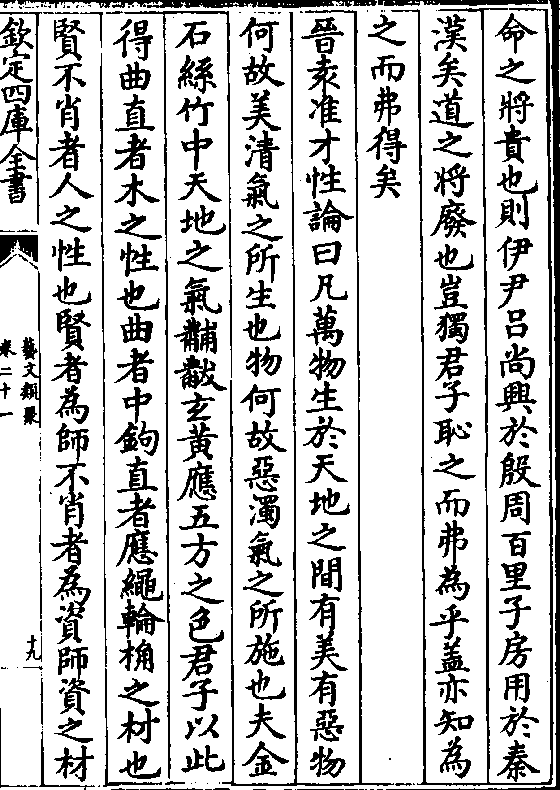 命之將貴也則伊尹吕尚興於殷周百里子房用於秦
漢矣道之將廢也豈獨君子恥之而弗為乎蓋亦知為
之而弗得矣
晉袁准才性論曰凡萬物生於天地之間有美有惡物
何故美清氣之所生也物何故惡濁氣之所施也夫金
石絲竹中天地之氣黼黻玄黃應五方之色君子以此
得曲直者木之性也曲者中鉤直者應繩輪桷之材也
賢不肖者人之性也賢者為師不肖者為資師資之材
欽定四庫全書
藝文類聚
卷二十一
十九